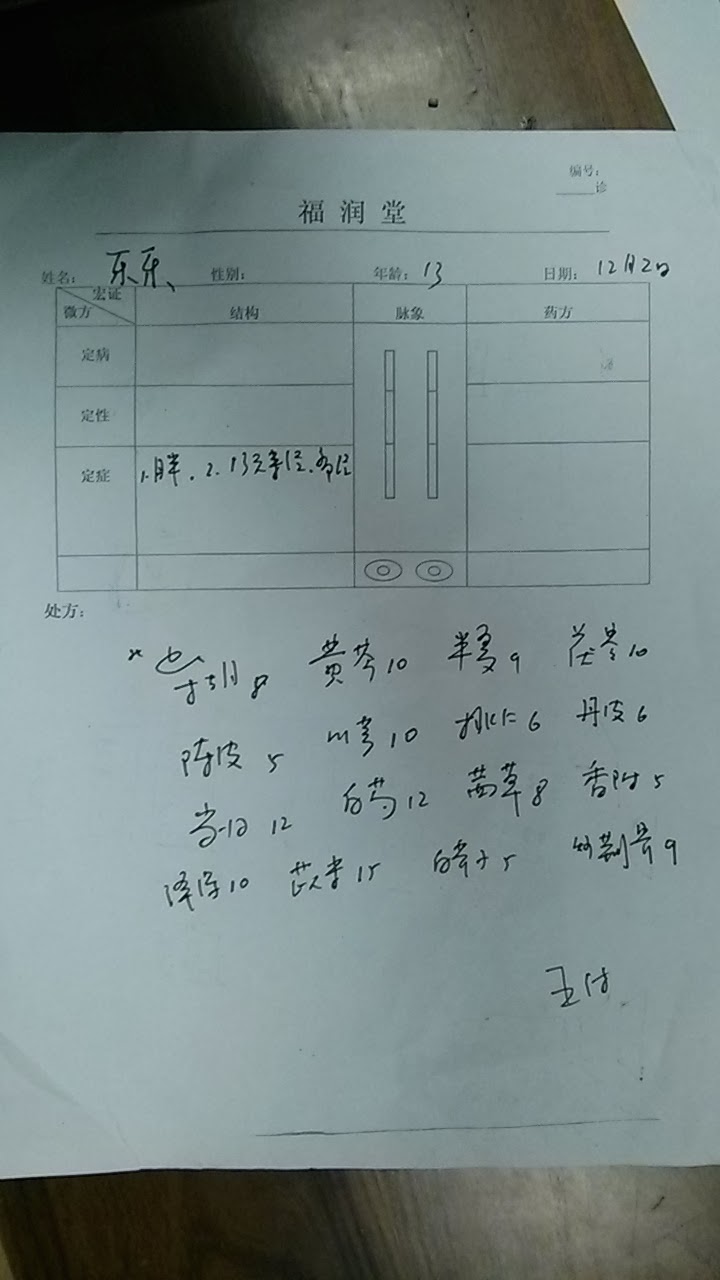 编号:
诊
福润堂
姓名: 乐乐、 性别: 年龄: 13 日期: 12月2日
宏证
微方 结构 脉象 药方
定病
定性
定症 1.胖. 2. 13
处方:
柴胡8 黄芩10 半夏9 茯苓10
陈皮5 川芎10 桃仁6 丹皮6
当归12 白芍12 茜草8 香附5
泽泻10 苡米15 白芥子5 炒荆芥9